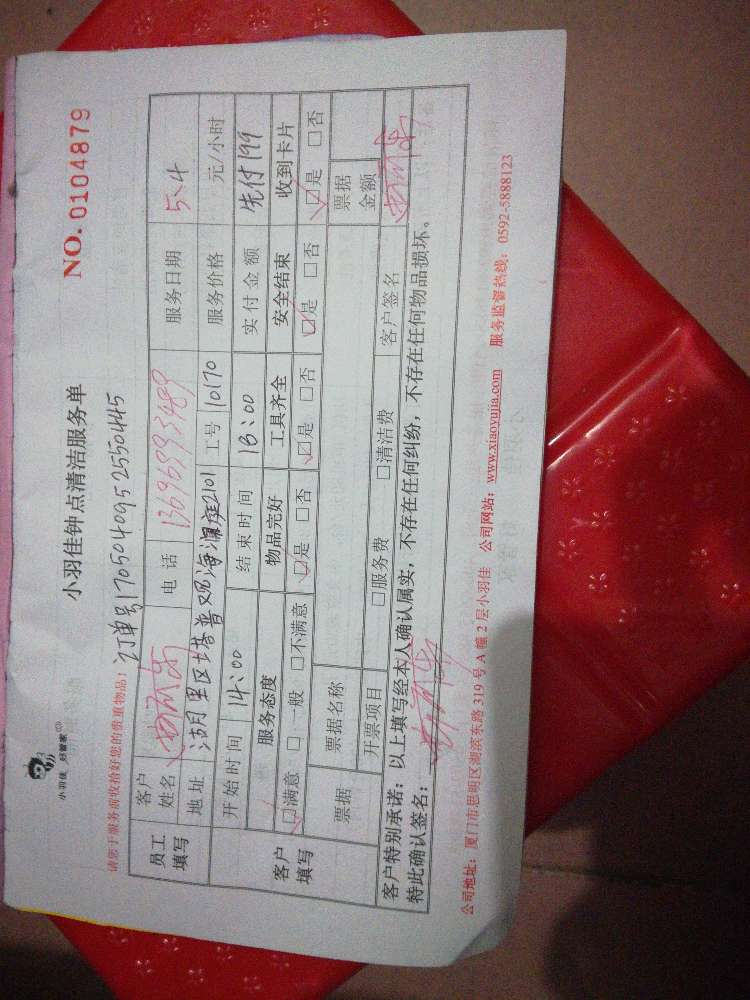 小羽佳 好管家
小羽佳钟点清洁服务单
NO. 0104879
请您于服务前收拾好您的贵重物品！ 订单号1705040952550445
员工填写 客户姓名 电话 13696993489 服务日期 5.4
地址 湖里区塔普观海澜庭2101 工号 10170 服务价格 元/小时
开始时间 14:00 结束时间 16:00 实付金额 先付199
客户填写 服务态度 物品完好 工具齐全 安全结束 收到卡片
☑满意 □一般 □不满意 ☑是 □否 ☑是 □否 ☑是 □否 ☑是 □否
票据 票据名称 票据金额
开票项目 □服务费 □清洁费 客户签名
客户特别承诺：以上填写经本人确认属实，不存在任何纠纷，不存在任何物品损坏。
特此确认签名：
公司地址：厦门市思明区湖滨东路 319 号 A 幢 2 层小羽佳 公司网站：www.xiaoyujia.com 服务监督热线：0592-5888123